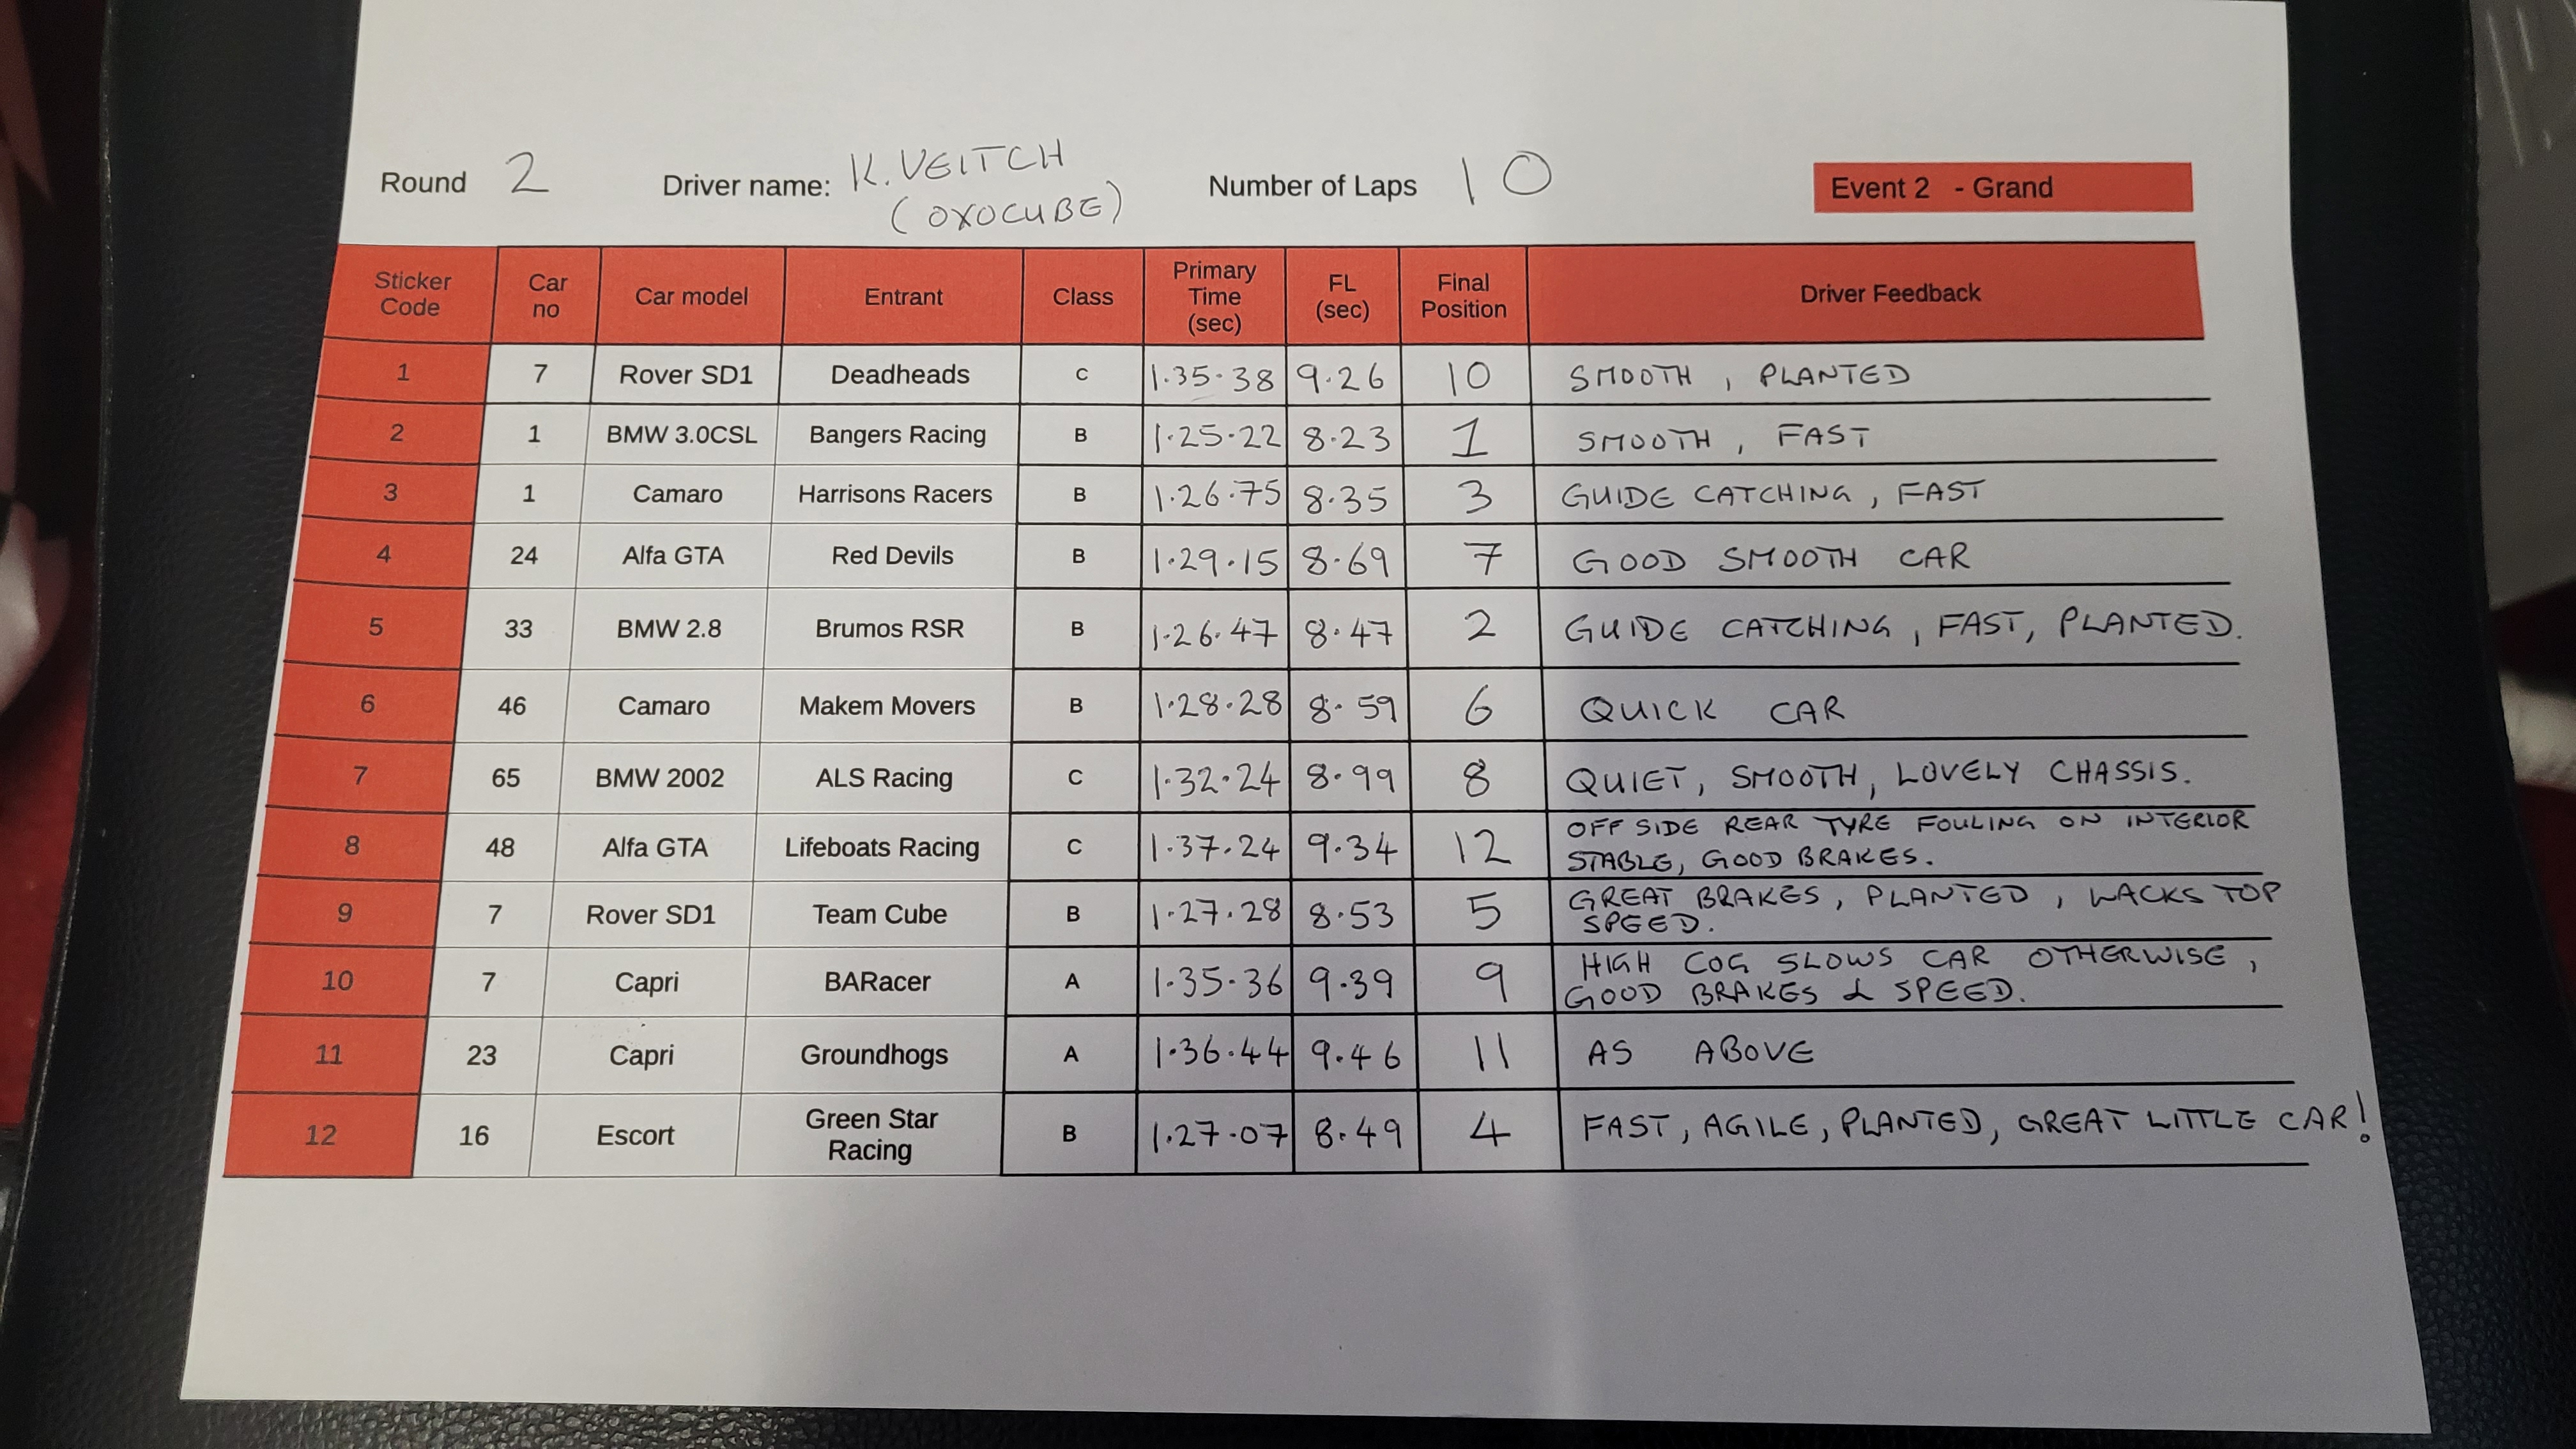 Round 2 Driver name: K. VEITCH Number of Laps 10 Event 2 - Grand
(OXOCUBE)
Sticker Code Car no Car model Entrant Class Primary Time (sec) FL (sec) Final Position Driver Feedback
1 7 Rover SD1 Deadheads C 1.35.38 9.26 10 SMOOTH, PLANTED
2 1 BMW 3.0CSL Bangers Racing B 1.25.22 8.23 1 SMOOTH, FAST
3 1 Camaro Harrisons Racers B 1.26.75 8.35 3 GUIDE CATCHING, FAST
4 24 Alfa GTA Red Devils B 1.29.15 8.69 7 GOOD SMOOTH CAR
5 33 BMW 2.8 Brumos RSR B 1.26.47 8.47 2 GUIDE CATCHING, FAST, PLANTED.
6 46 Camaro Makem Movers B 1.28.28 8.59 6 QUICK CAR
7 65 BMW 2002 ALS Racing C 1.32.24 8.99 8 QUIET, SMOOTH, LOVELY CHASSIS.
8 48 Alfa GTA Lifeboats Racing C 1.37.24 9.34 12 OFF SIDE REAR TYRE FOULING ON INTERIOR
STABLE, GOOD BRAKES.
9 7 Rover SD1 Team Cube B 1.27.28 8.53 5 GREAT BRAKES, PLANTED, LACKS TOP
SPEED.
10 7 Capri BARacer A 1.35.36 9.39 9 HIGH COG SLOWS CAR OTHERWISE,
GOOD BRAKES & SPEED.
11 23 Capri Groundhogs A 1.36.44 9.46 11 AS ABOVE
12 16 Escort Green Star Racing B 1.27.07 8.49 4 FAST, AGILE, PLANTED, GREAT LITTLE CAR!